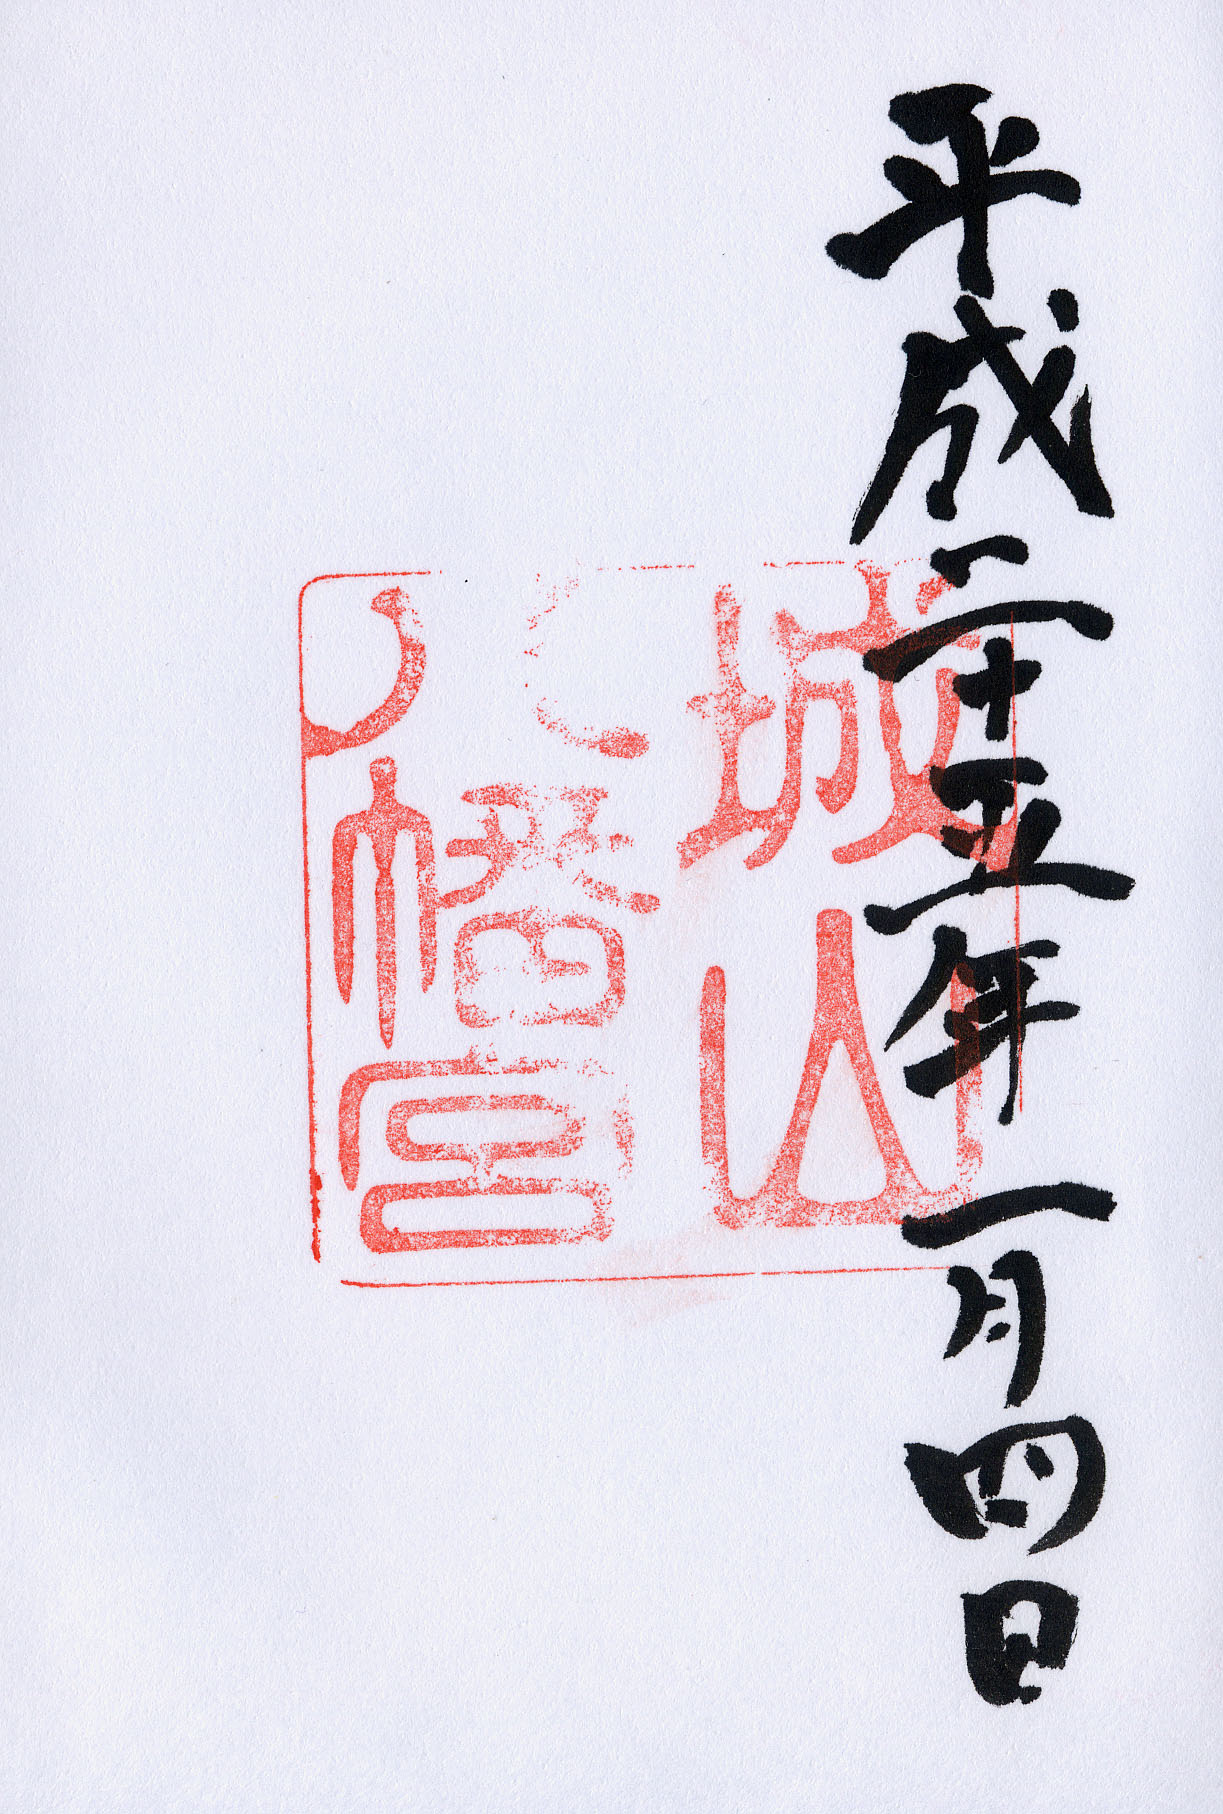 平成二十五年一月四日
城山
八幡宮